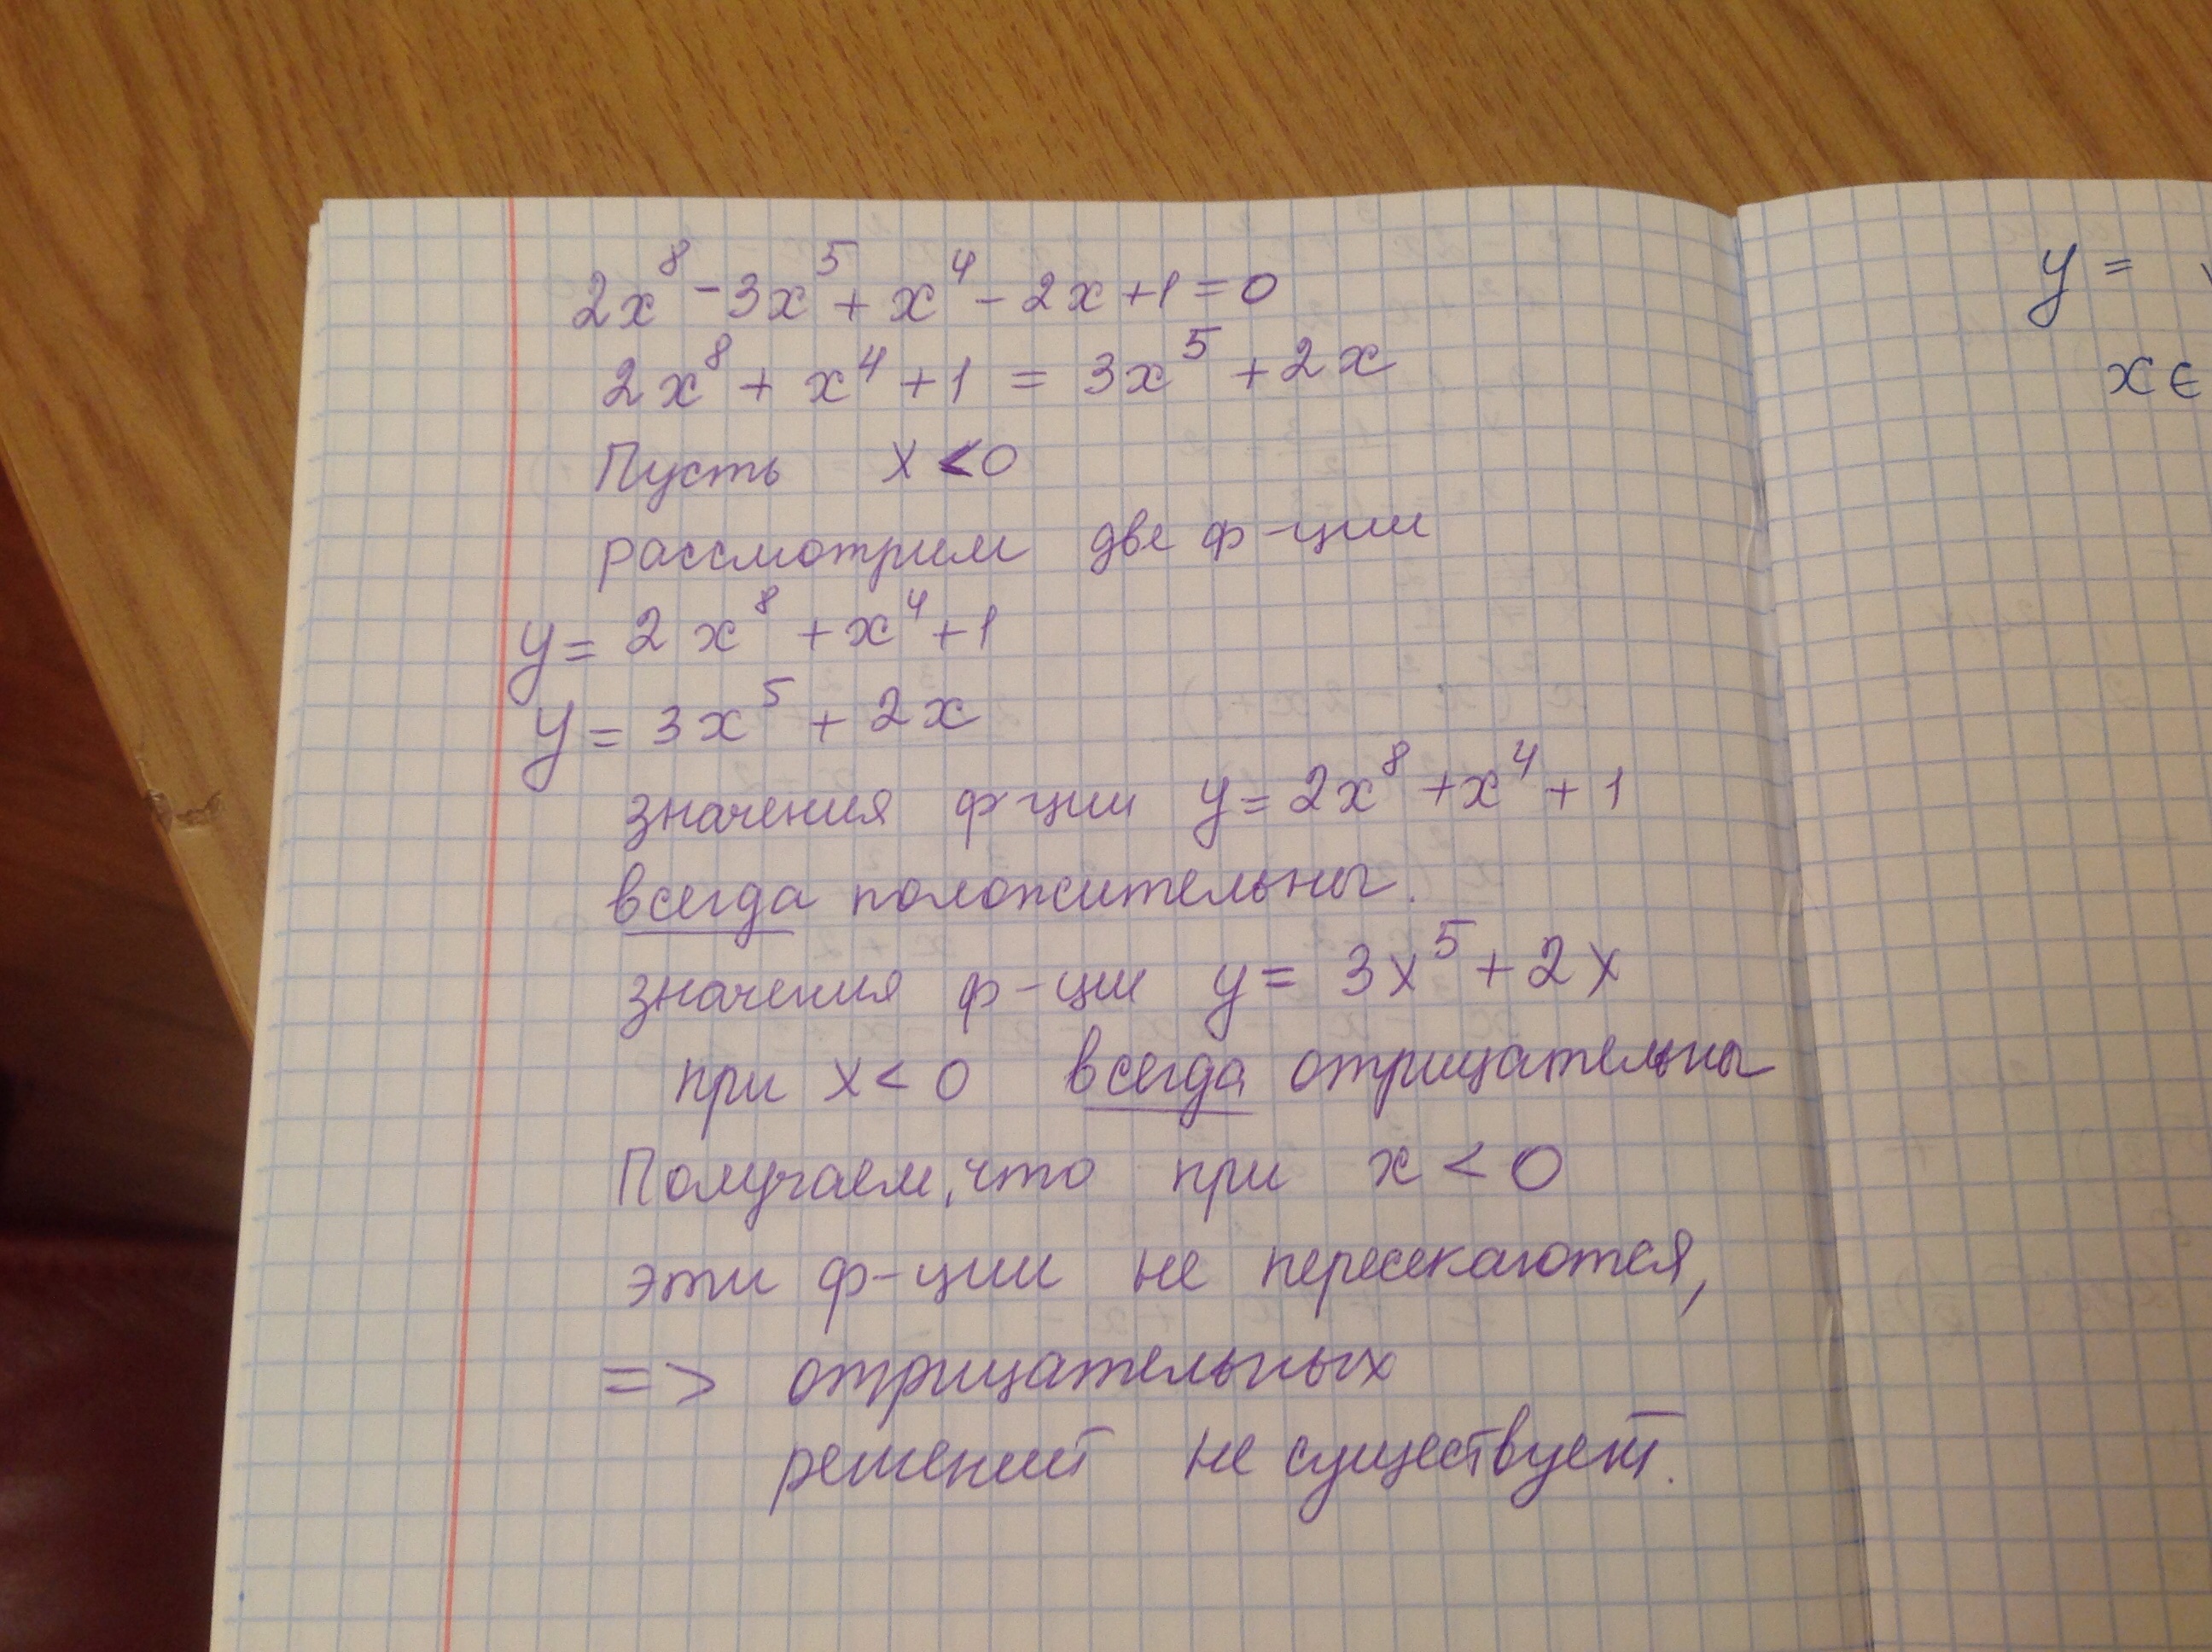 2x⁸ - 3x⁵ + x⁴ - 2x + 1 = 0
2x⁸ + x⁴ + 1 = 3x⁵ + 2x
Пусть x < 0
рассмотрим две ф-ции
y = 2x⁸ + x⁴ + 1
y = 3x⁵ + 2x
значения ф-ции y = 2x⁸ + x⁴ + 1
всегда положительны.
значения ф-ции y = 3x⁵ + 2x
при x < 0 всегда отрицательны
Получаем, что при x < 0
эти ф-ции не пересекаются,
=> отрицательных
решений не существует.
y =
x ∈